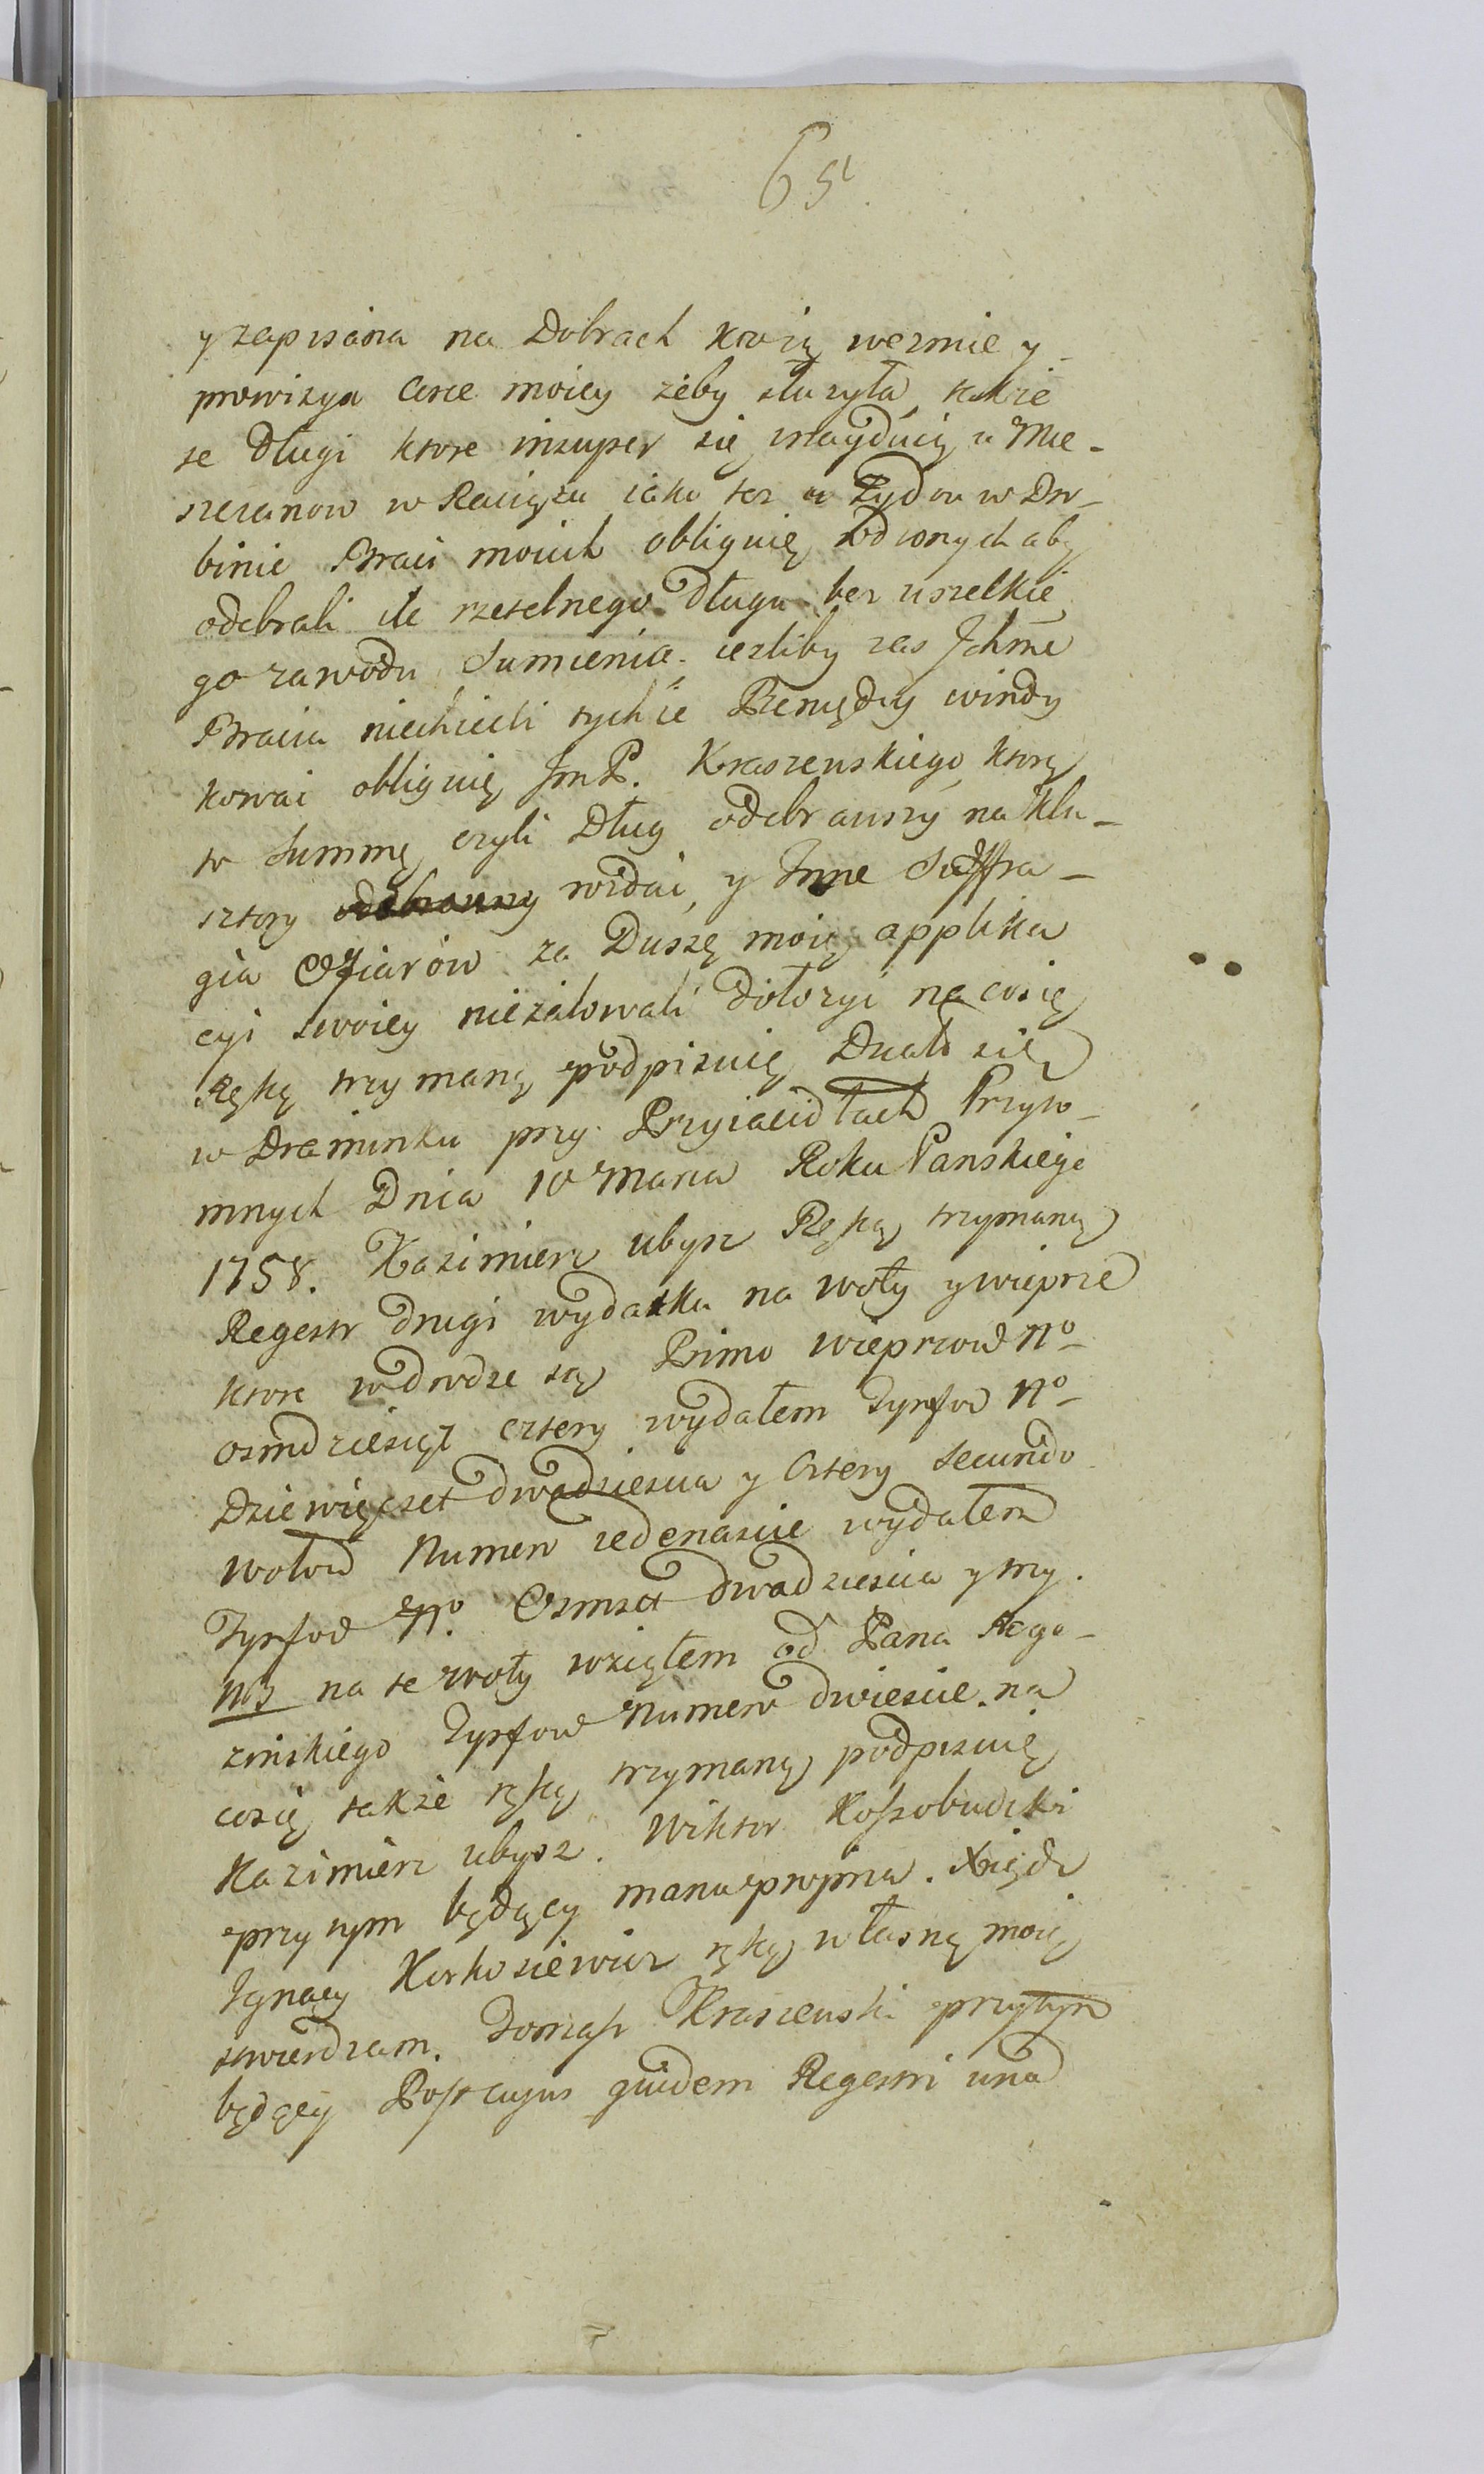 65
y zapisana na Dobrach ktorą wezmie y
prowizya Corce moiey żeby służyła, także
te Długi ktore insuper się znayduią u Mie-
szczanow w Raciążu iako też u Żydow w Dro-
binie Braci moich obliguię rodzonych aby
odebrali ile rzetelnego Długu bez wszelkie
go zawodu Sumienia. iezliby zas Ichme
Bracia niechcieli tychże Pieniędzy windy
kować obliguię JmP. Kraszewskiego ktory
te Summę czyli Dług odebrawszy na Kla-
sztory odebrawszy rozdać, y Inne Suffra-
gia Ofiarow za Duszę moię applika
cyi swoiey nieżałowali dołożyć na co się
Ręką trzymaną podpisuię Działo się
w Draminku przy Przyiaciołach Przyto-
mnych Dnia 10 Marca Roku Panskiego
1758. Kazimierz Ubysz Ręką trzymaną
Regestr drugi wydatku na woły y wieprze
ktore w drodze są Primo wieprzow No
osmdziesiąt cztery wydałem Tynfow No
Dziewięćset dwadziescia y Cztery Secundo
wołow Numero iedenascie wydałem
Tynfow No. Osmset dwadziescia y trzy.
NB na te woły wziąłem od Pana Rogo-
zinskiego Tynfow Numero dwiescie. na
co się także ręką trzymaną podpisuię
Kazimierz Ubysz. Wiktor Kossobudzki
przy tym będący manu propria. Xiądz
Ignacy Korkosiewicz ręką własną moią
stwierdzam. Tomasz Kraszewski przytym
będący Post cujus quidem Regestri una